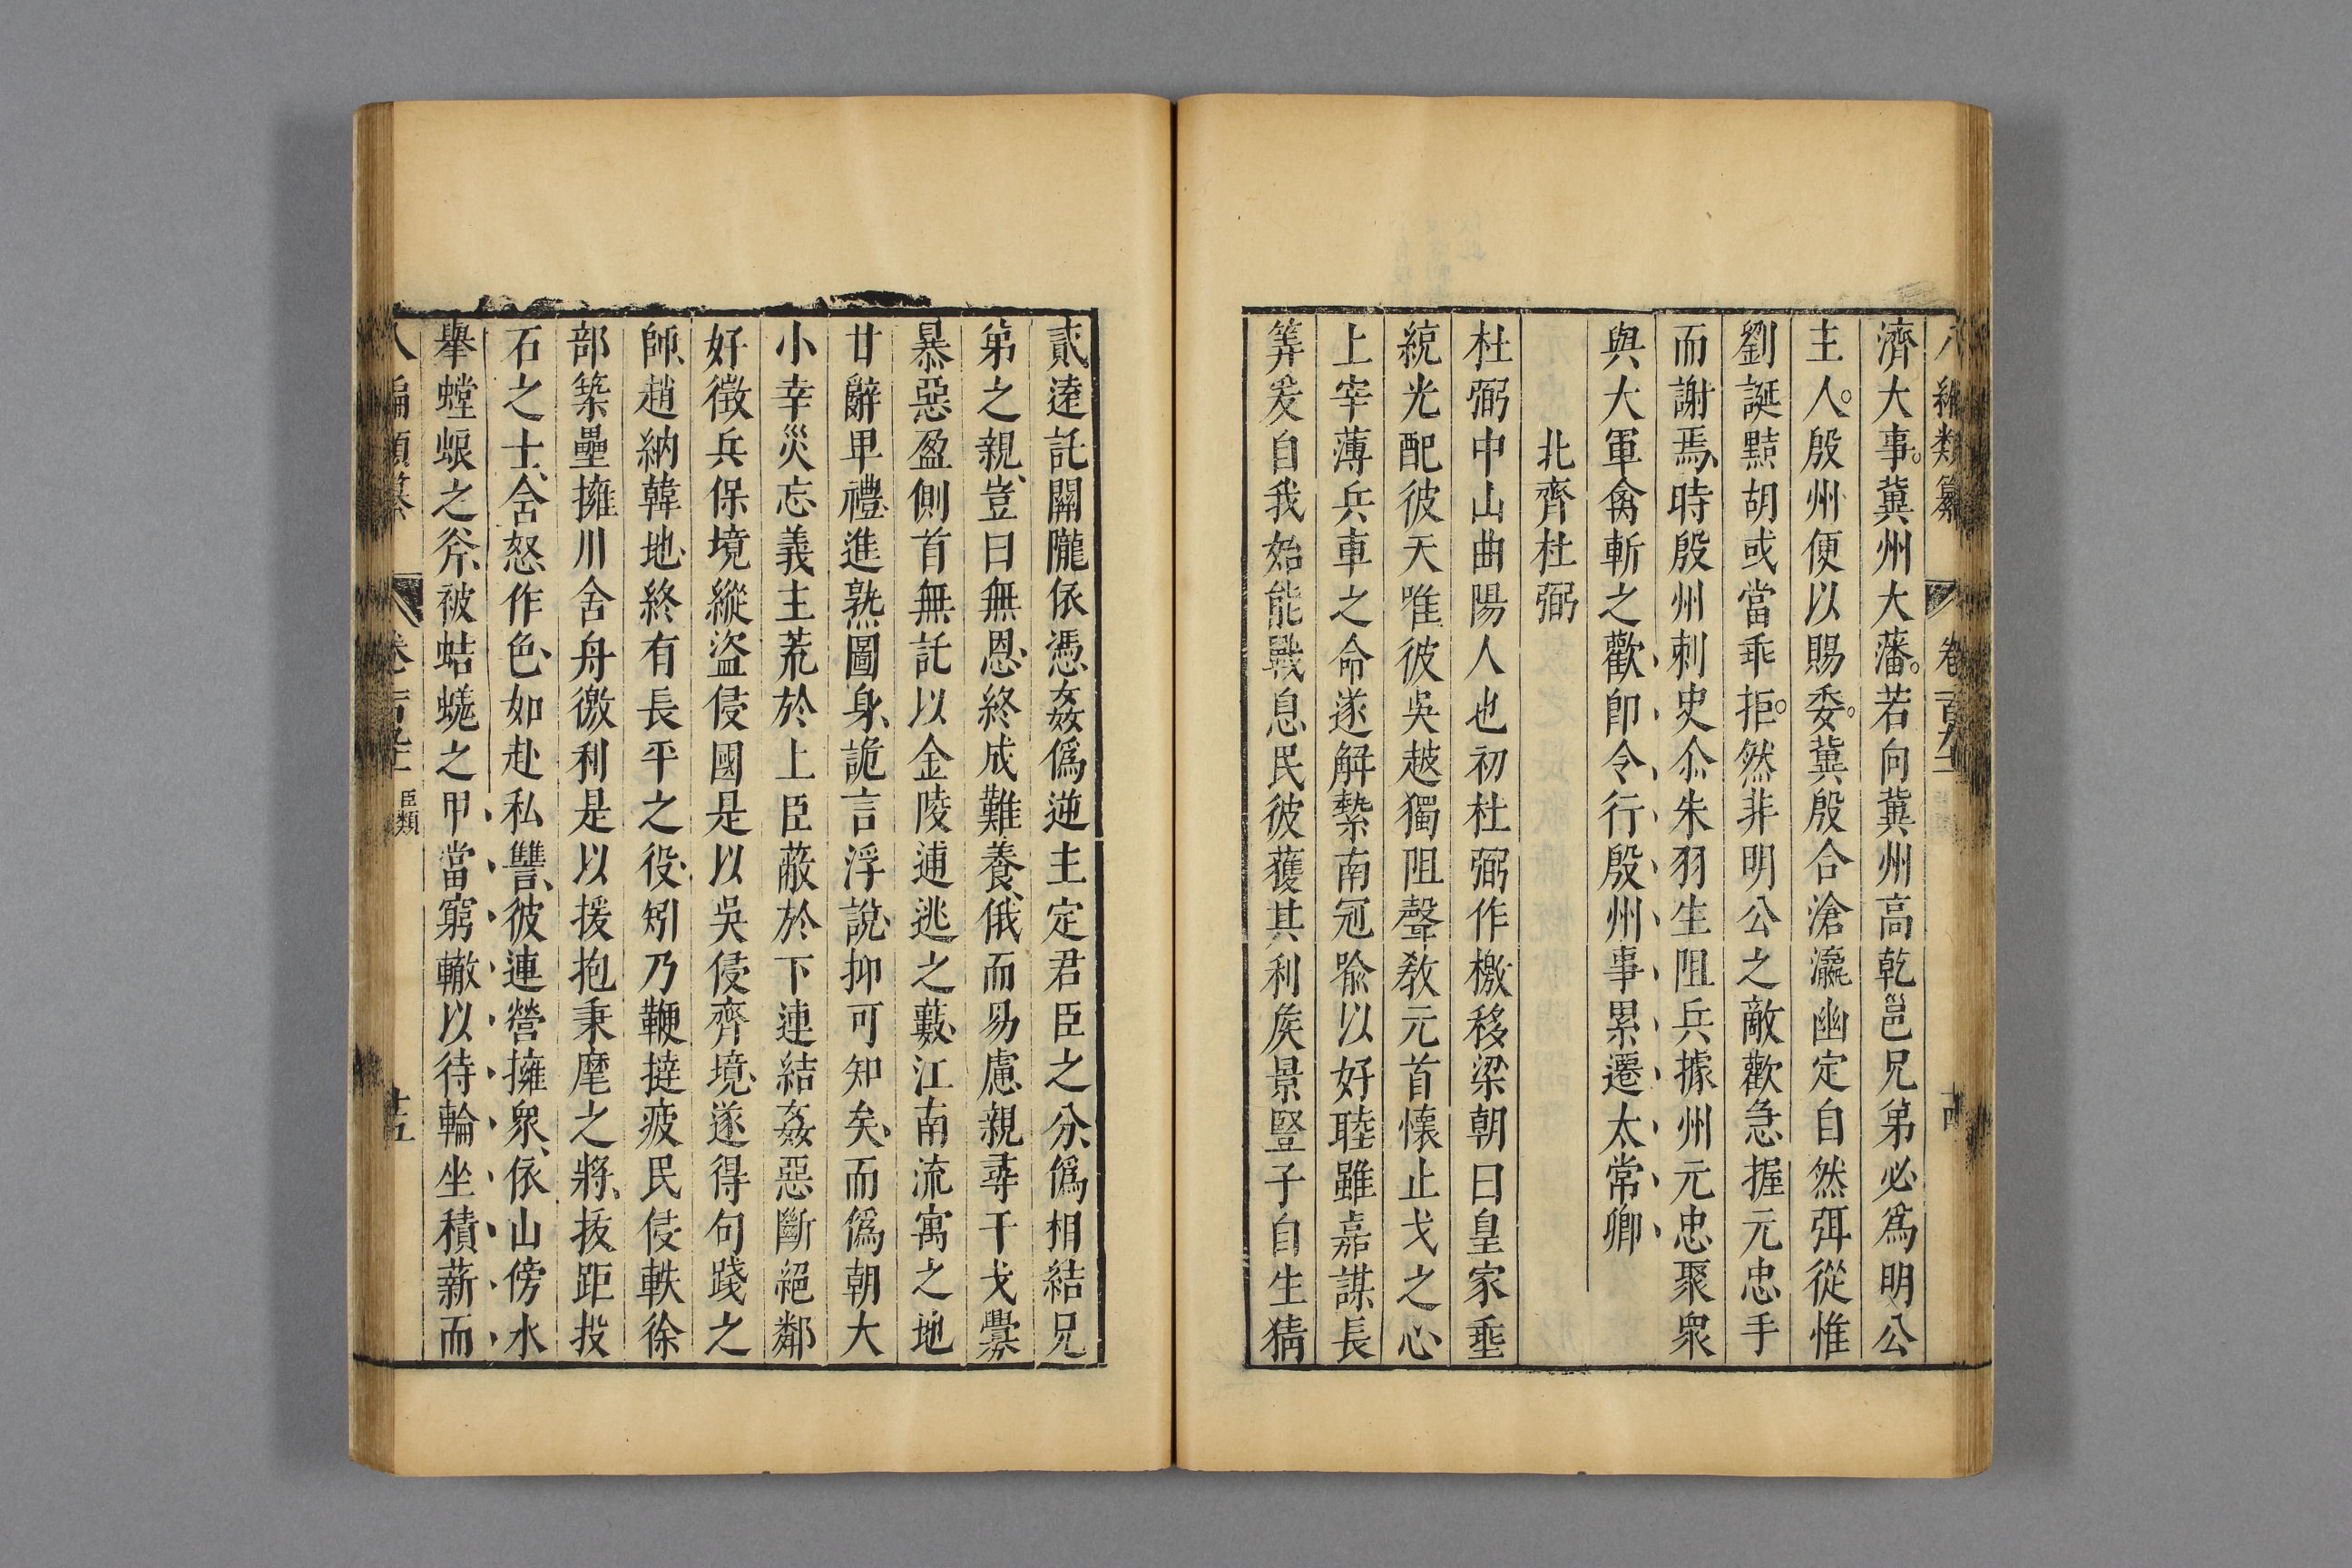 八編類纂 卷一百九十二 十四
濟大事。冀州大藩。若向冀州高乾邕兄弟必爲明公
主人。殷州便以賜委。冀殷合滄瀛幽定自然弭從惟
劉誕黠胡或當乖拒。然非明公之敵歡急握元忠手
而謝焉、時殷州刺史尒朱羽生阻兵據州元忠聚衆
與大軍禽斬之歡卽令行殷州事累遷太常卿
北齊杜弼
杜弼中山曲陽人也初杜弼作檄移梁朝曰皇家垂
統光配彼天唯彼吳越獨阻聲敎元首懷止戈之心、
上宰薄兵車之命遂解縶南冠喩以好睦雖嘉謀長
筭爰自我始能戰息民彼獲其利矦景豎子自生猜
貳遠託關隴依憑姦僞逆主定君臣之分、僞相結兄
弟之親、豈曰無恩、終成難養、俄而易慮親尋干戈釁
暴惡盈側首無託以金陵逋逃之藪、江南流寓之地
甘辭卑禮、進熟圖身、詭言浮說、抑可知矣、而僞朝大
小幸災忘義主荒於上臣蔽於下連結姦惡斷絕鄰
好徵兵保境縱盜侵國是以吳侵齊境、遂得句踐之
師、趙納韓地、終有長平之役、矧乃鞭撻疲民侵軼徐
部築壘擁川舍舟徼利是以援抱秉麾之將、拔距投
石之士、含怒作色、如赴私讐、彼連營擁衆、依山傍水
舉螳蜋之斧、被蛣蜣之甲、當窮轍以待輪坐積薪而
八編類纂 卷一百九十二 臣類 十五